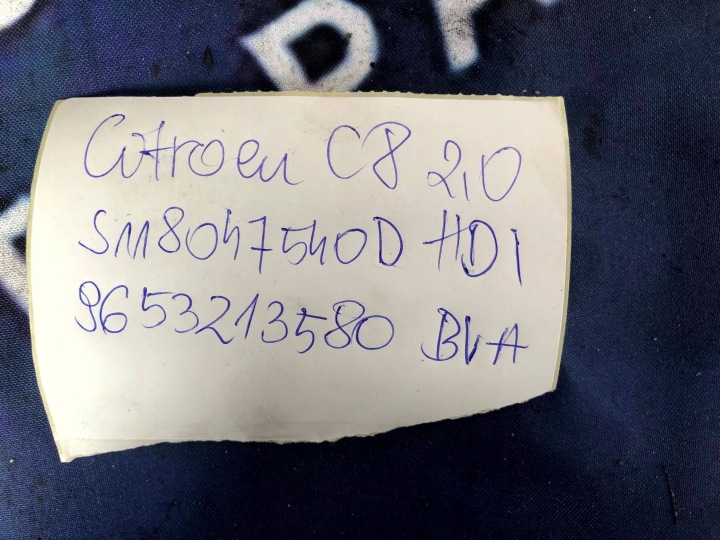 Citroen C8 2,0
S118047540D HDI
9653213580 BVA